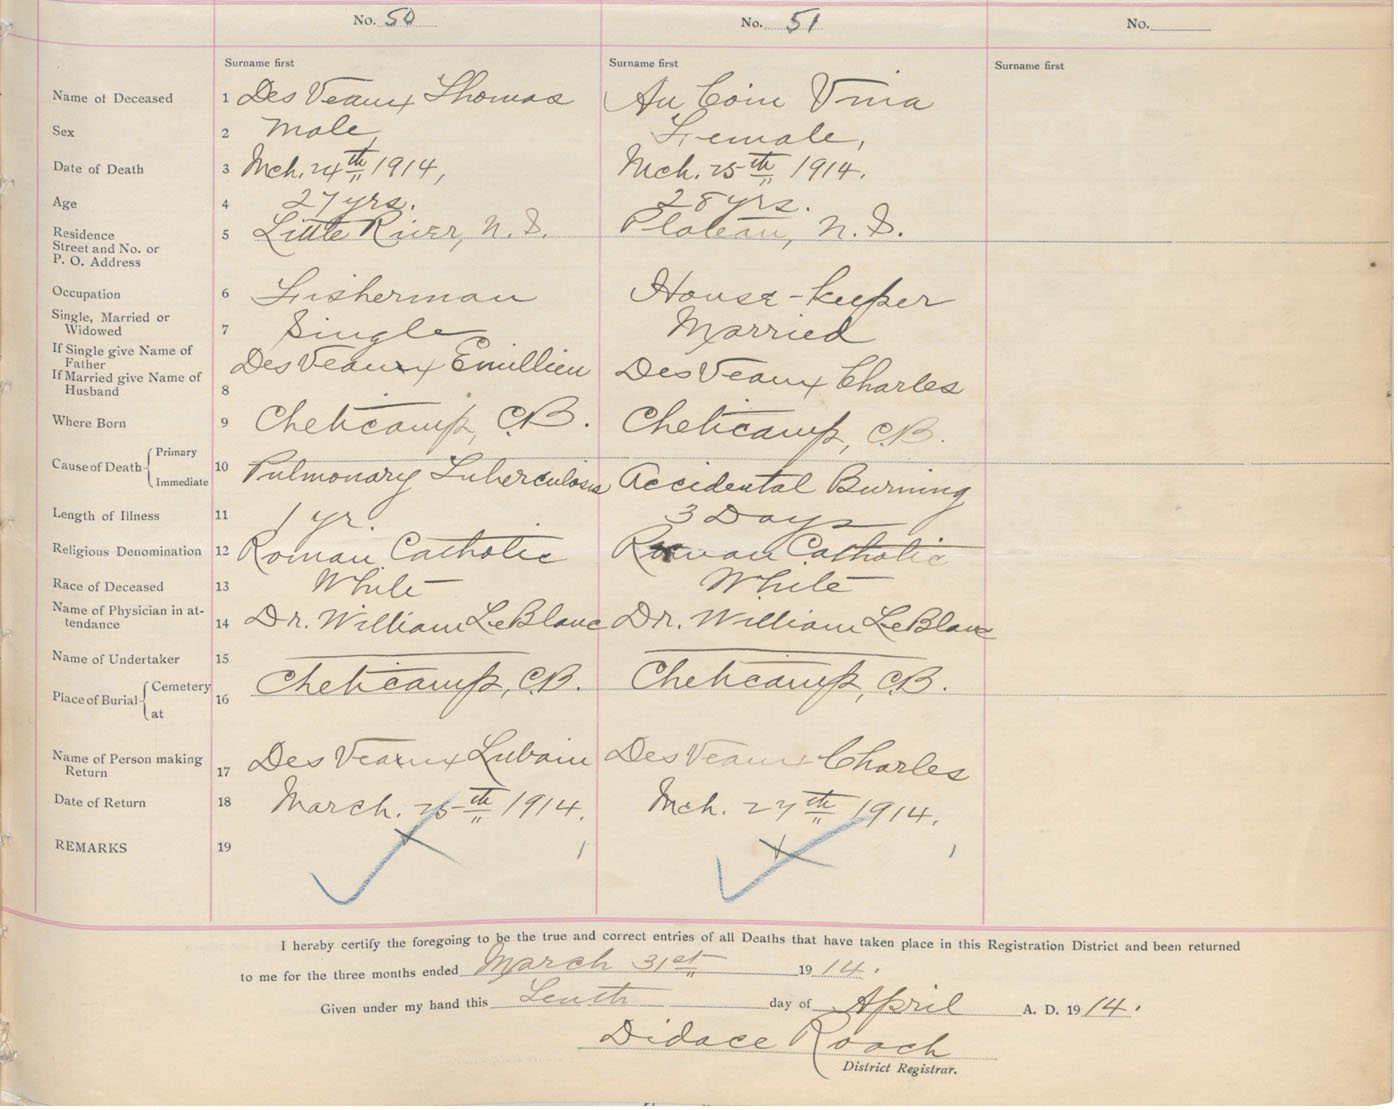 No. 50 No. 51 No.
Surname first Surname first Surname first
Name of Deceased 1 Des Veaux Thomas Au Coin Vina
Sex 2 Male, Female,
Date of Death 3 Mch. 24th 1914, Mch. 25th 1914.
Age 4 27 yrs. 28 yrs.
Residence
Street and No. or 5 Little River, N. S. Plateau, N. S.
P. O. Address
Occupation 6 Fisherman House-keeper
Single, Married or
Widowed 7 Single Married
If Single give Name of
Father Des Veaux Emillien Des Veaux Charles
If Married give Name of
Husband 8
Where Born 9 Cheticamp, C.B. Cheticamp, C.B.
Cause of Death Primary
10 Pulmonary Tuberculosis Accidental Burning
Immediate
Length of Illness 11 1 yr. 3 Days
Religious Denomination 12 Roman Catholic Roman Catholic
Race of Deceased 13 White White
Name of Physician in at-
tendance 14 Dr. William LeBlanc Dr. William LeBlanc
Name of Undertaker 15
Place of Burial Cemetery Cheticamp, C.B. Cheticamp, C.B.
at 16
Name of Person making
Return 17 Des Veaux Lubain Des Veaux Charles
Date of Return 18 March. 25th 1914. Mch. 27th 1914.
REMARKS 19 1 1
I hereby certify the foregoing to be the true and correct entries of all Deaths that have taken place in this Registration District and been returned
to me for the three months ended March 31st 19 14.
Given under my hand this Tenth day of April A. D. 19 14.
Didace Roach
District Registrar.